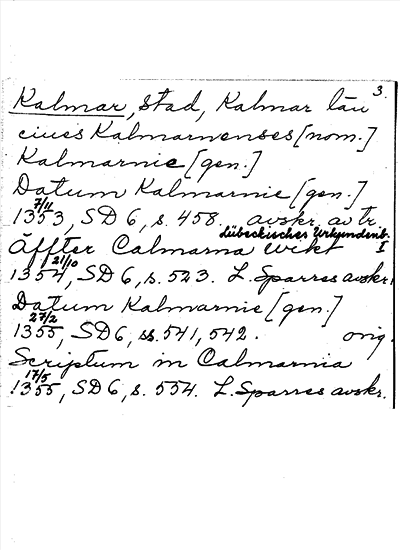 3.
Kalmar, stad, Kalmar län
cives Kalmarnenses [nom.]
Kalmarnie [gen.]
Datum Kalmarnie [gen.]
7/11
1353, SD 6, s. 458. avskr. av tr.
Lübeckisches Urkundenb. I
äffter Calmarna wikt
21/10
1354, SD 6, s. 523. L. Sparres avskr.
Datum Kalmarnie [gen.]
27/2
1355, SD 6, ss. 541, 542. orig.
Scriptum in Calmarnia
17/5
1355, SD 6, s. 554. L. Sparres avskr.